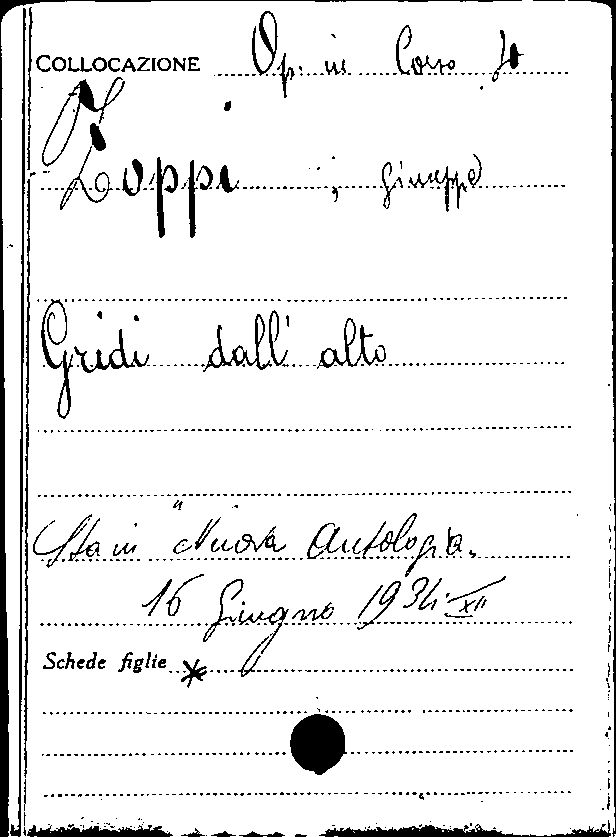 COLLOCAZIONE Op. in Corso
Zoppi, Giuseppe
Gridi dall' alto
Sta in "Nuova Antologia.
16 Giugno 1934-XII
Schede figlie *